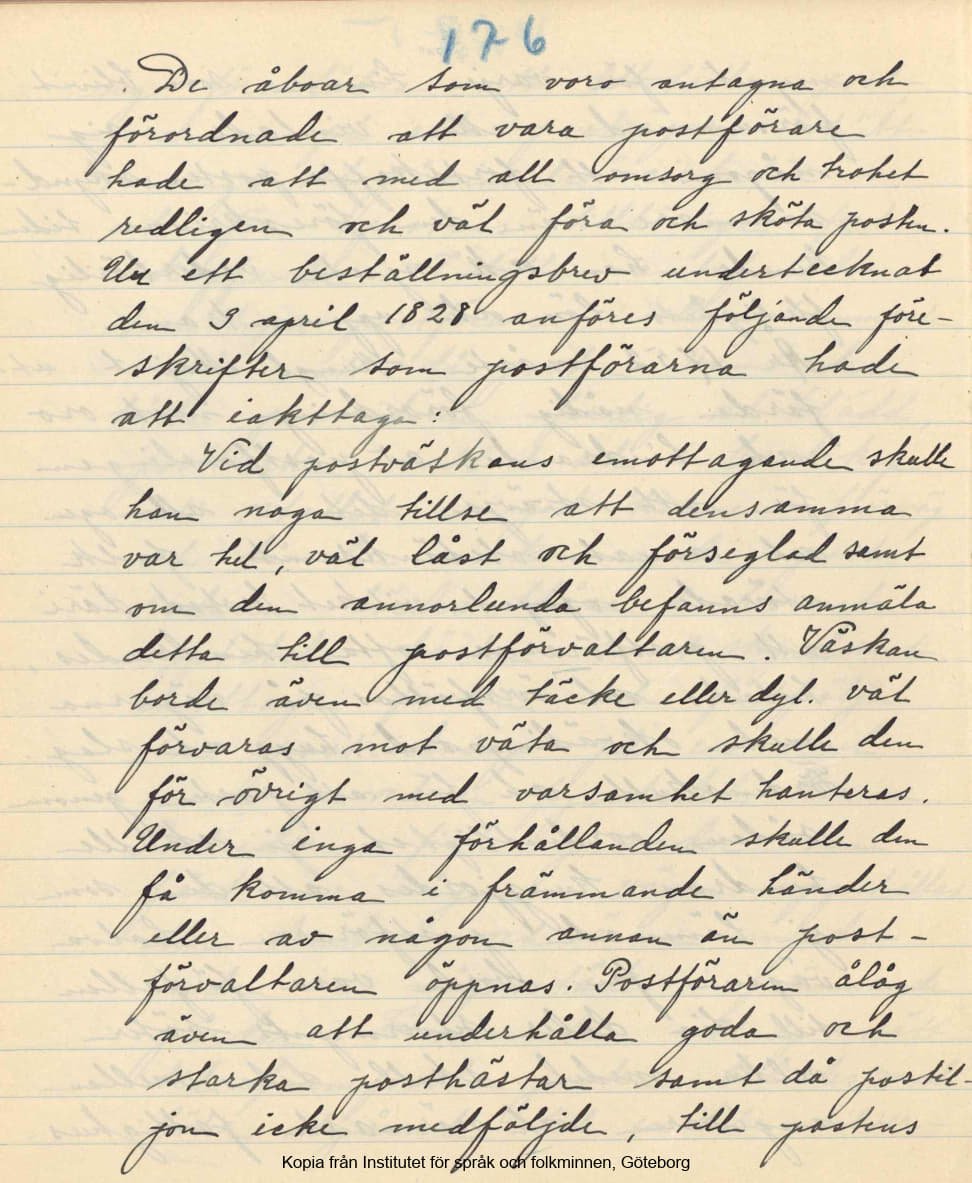 176
De åboar som voro antagna och
förordnade att vara postförare
hade att med all omsorg och trohet
redligen och väl föra och sköta posten.
Ur ett beställningsbrev undertecknat
den 3 april 1828 anföres följande före-
skrifter som postförarna hade
att iakttaga:
Vid postväskans emottagande skulle
han noga tillse att densamma
var hel, väl låst och förseglad samt
om den annorlunda befanns anmäla
detta till postförvaltaren. Väskan
borde även med täcke eller dyl. väl
förvaras mot väta och skulle den
för övrigt med varsamhet hanteras.
Under inga förhållanden skulle den
få komma i främmande händer
eller av någon annan än post-
förvaltaren öppnas. Postföraren ålåg
även att underhålla goda och
starka posthästar samt då postil-
jon icke medföljde, till postens
Kopia från Institutet för språk och folkminnen, Göteborg